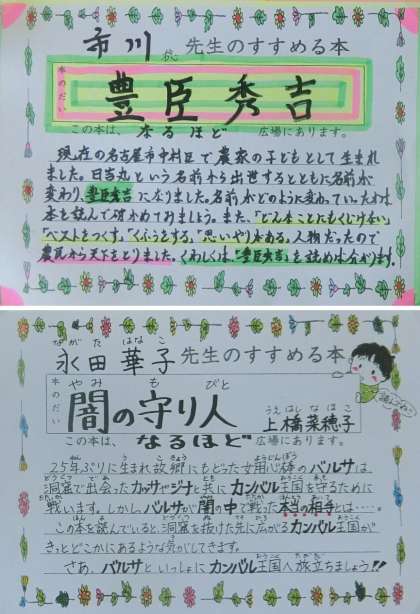 市川 先生のすすめる本
本のだい
豊臣秀吉
この本は、なるほど広場にあります。
現在の名古屋市中村区で農家の子どもとして生まれ
ました。日吉丸という名前から出世するとともに名前が
変わり、豊臣秀吉になりました。名前がどのように変わっていったかは
本を読んで確かめてみましょう。また、「どんなことにもくじけない」
「ベストをつくす」、「くふうをする」、「思いやりがある」人物だったので
農民から天下をとりました。くわしくは「豊臣秀吉」を読めば分かります。
ながた はなこ
永田華子 先生のすすめる本
本のだい
やみ も びと
闇の守り人
うえはしなほこ
上橋菜穂子
この本は、なるほど広場にあります。
25年ぶりに生まれ故郷にもどった女用心棒のバルサは、
洞窟で出会ったカッサやジナと共にカンバル王国を守るために
戦います。しかし、バルサが闇の中で戦った本当の相手とは‥‥
この本を読んでいると洞窟を抜けた先に広がるカンバル王国が
きっとどこかにあるような気がしてきます。
さあ、バルサといっしょにカンバル王国へ旅立ちましょう!!